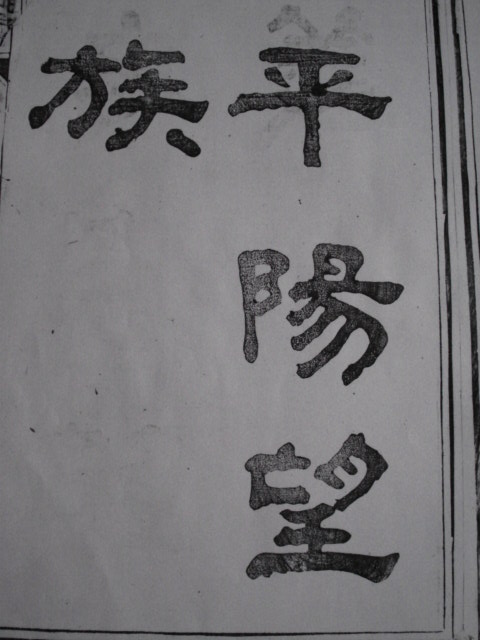 平陽望
族